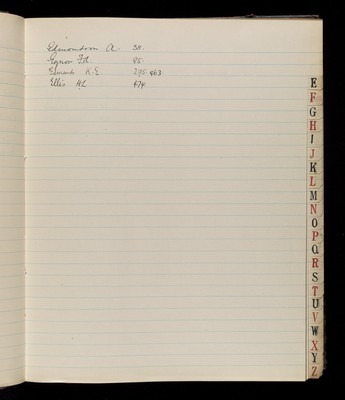 Edmondson A. 38.
Egnor F.H. 85.
Edmands K.E. 295. 463
Ellis H.L 474
E
F
G
H
I
J
K
L
M
N
O
P
Q
R
S
T
U
V
W
X
Y
Z